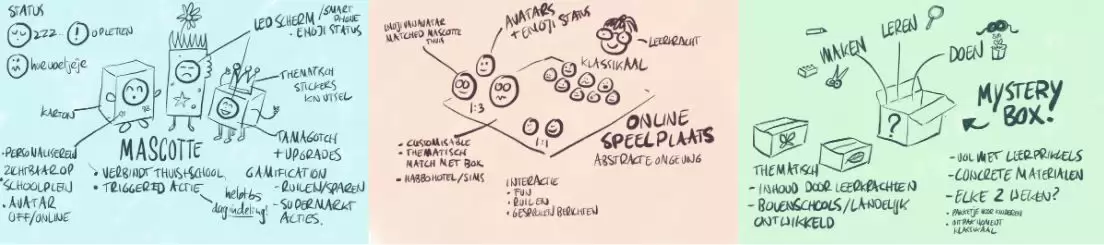 STATUS
zzz...
! OPLETEN
hoe voel je je
LED SCHERM / SMART PHONE
• EMOJI STATUS
THEMATISCH
STICKERS
KNUTSEL
KARTON
TAMAGOTCH
+ UPGRADES
MASCOTTE
• PERSONALISEREN
ZICHTBAAR OP
• SCHOOLPLEIN
• AVATAR
OFF/ONLINE
• VERBINDT THUIS+SCHOOL
• TRIGGERED ACTIE
hebt bs
dagindeling!
GAMIFICATION
- RUILEN/SPAREN
- SUPERMARKT
ACTIES.
EMOJI VAN AVATAR
MATCHED MASCOTTE
THUIS
AVATARS
+ EMOJI STATUS
LEERKRACHT
KLASSIKAAL
1:3
1:1
ONLINE
SPEELPLAATS
ABSTRACTE OMGEVING
- CUSTOMISABLE
- THEMATISCH
MATCH MET BOX
- HABBOHOTEL/SIMS
INTERACTIE
• FUN
• RUILEN
• GESPROKEN BERICHTEN
MAKEN
LEREN
DOEN
?
MYSTERY
BOX!
THEMATISCH
- INHOUD DOOR LEERKRACHTEN
- BOVENSCHOOLS/LANDELIJK
ONTWIKKELD
- VOL MET LEERPRIKKELS
- CONCRETE MATERIALEN
- ELKE 2 WEKEN?
• PAKKETJE VOOR KINDEREN
• UITPAK MOMENT
KLASSIKAAL